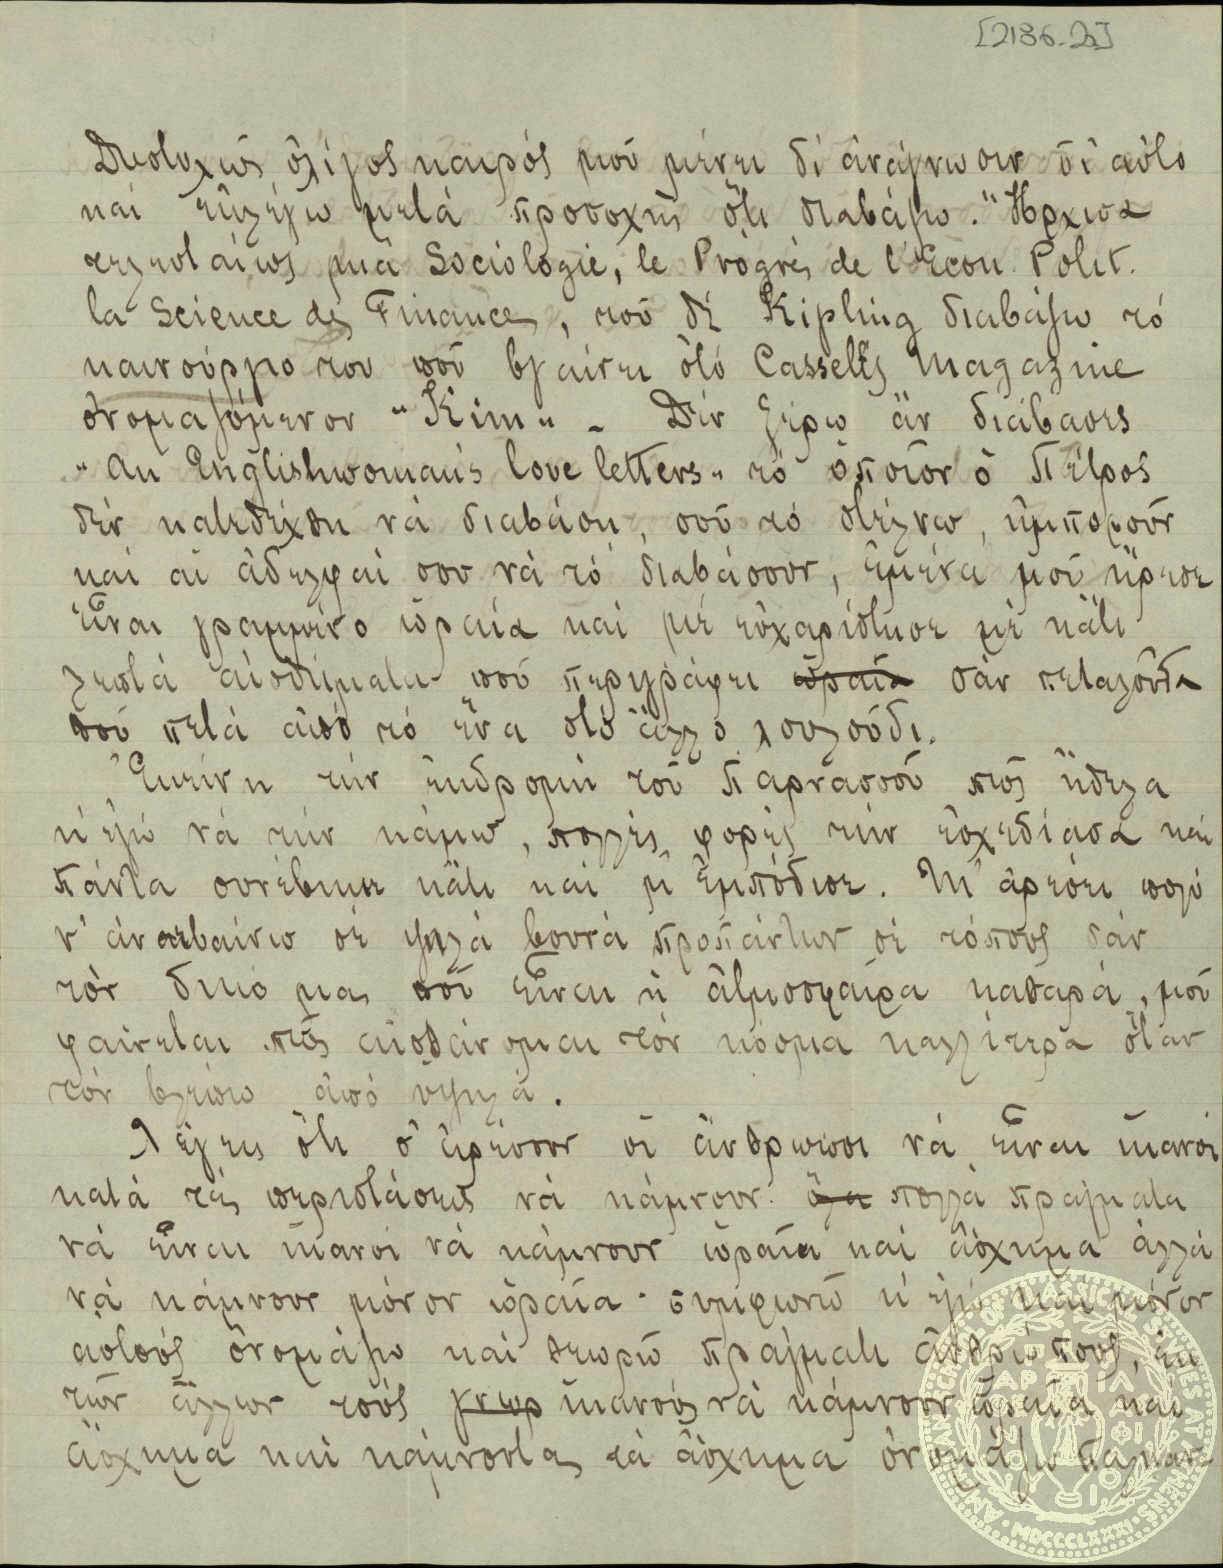 [2186-2α]
Δυστυχῶς ὀλίγος καιρός μοῦ μένει δι' ἀνάγνωσιν δι' αὐτο
καί ἐκλέγω μετά προσοχῆς ὅτι διαβάζω. Ἤρχισα
τελευταίως μιά Sociologie, le Progrès de l'Econ. Polit.
la Science des Finances, τοῦ δέ Kipling διαβάζω τό
καινούργιο του ποῦ βγαίνει στό Cassell's Magazine
ὀνομαζόμενον "Kim" - Δέν ξέρω ἄν διάβασες
"An Englishwoman's love letters" τό ὁποῖον ὁ Πέτρος
δέν κατεδέχθη νά διαβάση, σοῦ τό στέλνω, ἠμποροῦν
καί αἱ ἀδελφαί σου νά τό διαβάσουν, ἐμένα μοῦ ἤρεσε
εἶναι γραμμένο ὡραῖα καί μέ εὐχαρίστησε μέ κάτι
λεπτά αἰσθήματα ποῦ περιγράφει ὡραῖα σάν πεταλοῦδα
ποῦ πετά ἀπό τό ἕνα στό ἄλλο λουλούδι.
Ἐκείνη τήν ἐκδρομή τοῦ Παρνασσοῦ πῶς ἤθελα
κ' ἐγώ νά τήν κάμω, πολλές φορές τήν ἐσχεδίασα καί
πάντα συνέβηκε κάτι καί μ' ἐμπόδισε. Μ' ἀρέσει πολύ
ν' ἀναιβαίνω σέ ψηλά βουνά προπάντων σέ τόπους σάν
τόν δικό μας ποῦ εἶναι ἡ ἀτμοσφαῖρα καθαρά, μοῦ
φαίνεται πῶς αἰσθάνομαι τόν κόσμο καλλίτερα ὅταν
τόν βλέπω ἀπό ὑψηλά.
Λέγεις ὅτι σ' ἀρέσουν οἱ ἄνθρωποι νά εἶναι ἱκανοί
κατά τάς περιστάσεις νά κάμνουν ὅλα πολλά πράγματα
νά εἶναι ἱκανοί νά κάμνουν ὡραῖα καί ἄσχημα ἀλλά
νά κάμνουν μόνον ὡραῖα· συμφωνῶ κ' ἐγώ καί μόνον
αὐτούς ὀνομάζω καί θεωρῶ πράγματι ἀνθρώπους, ἐκ
τῶν ἄλλων τούς γνωρ ἱκανούς νά κάμνουν ὡραῖα καί
ἄσχημα καί κάμνοντας τά ἄσχημα ὀνομάζω